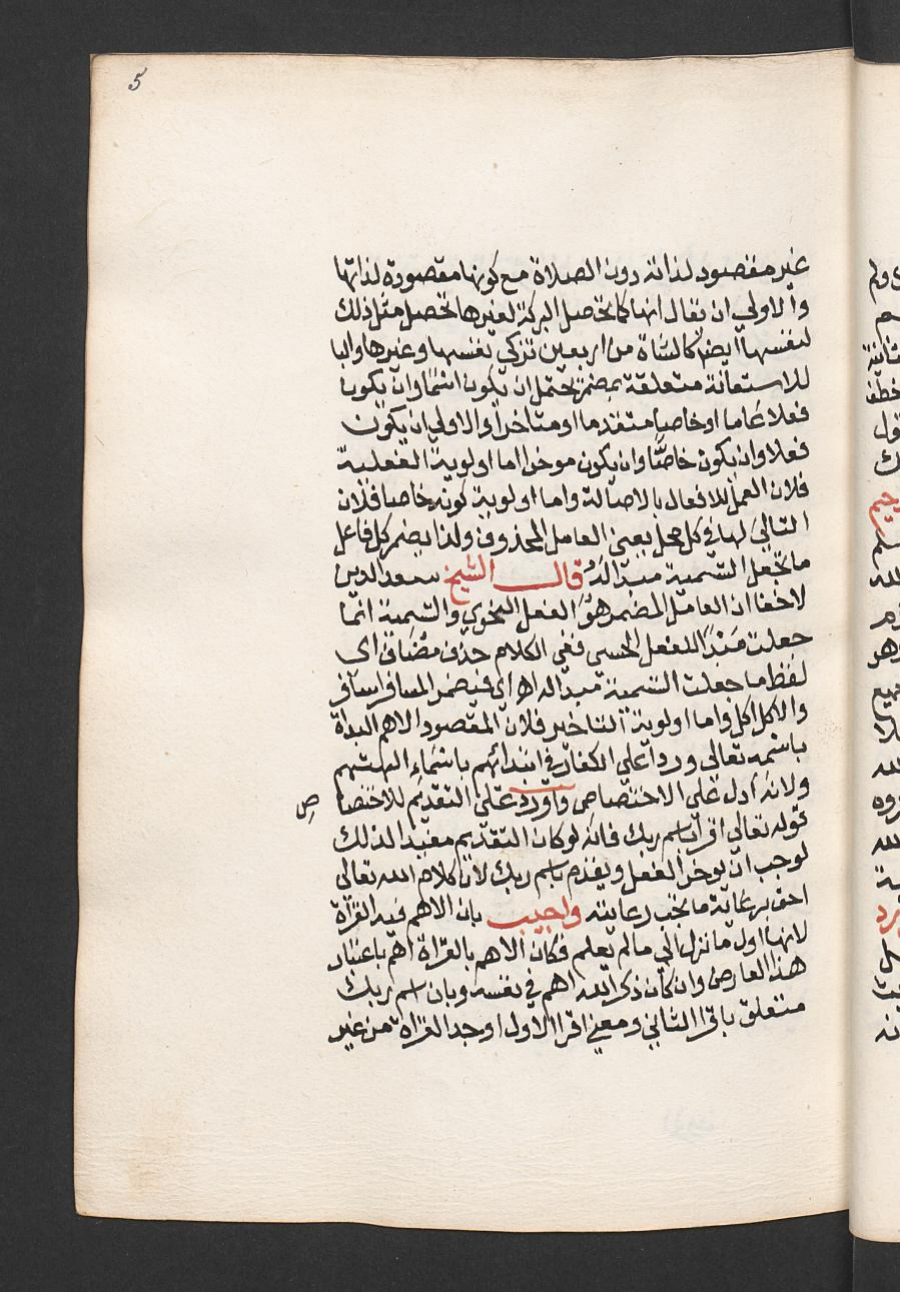 5
غير مقصود لذاته دون الصلاة مع كونها مقصودة لذاتها
والاولي ان يقال انها كما تحصل البركة لغيرها تحصل مثل ذلك
لنفسها ايضا كالشاة من اربعين تزكي نفسها وغيرها والبا
للاستعانة متعلقة بمضمر يحتمل ان يكون اسما وان يكون
فعلا عاما او خاصا متقدما او متاخرا والاولي ان يكون
فعلا وان يكون خاصا وان يكون موخرا اما اولوية الفعلية
فلان العمل للافعال بالاصالة واما اولوية كونه خاصا فلان
التالي لها في كل محل يعين العامل المحذوف ولذا يضمر كل فاعل
ما تجعل التسمية مبدا له قال الشيخ سعد الدين
لا خفا ان العامل المضمر هو الفعل النحوي والتسمية انما
جعلت مبدا للفعل الحسي ففي الكلام حذف مضاف اي
لفظ ما جعلت التسمية مبدا له اه اي فيضمر المسافر اسافر
والاكل اكل واما اولوية التاخير فلان المقصود الاهم البداة
باسمه تعالى وردا علي الكفار في ابتدائهم باسماء الهتهم
ولانه ادل علي الاختصاص واورد علي التقديم للاختصا
ص
قوله تعالى اقرا باسم ربك فانه لو كان التقديم مفيدا لذلك
لوجب ان يوخر الفعل ويقدم باسم ربك لان كلام الله تعالى
احق برعاية ما يجب رعايته واجيب بان الاهم فيه القراة
لانها اول ما نزل الي ما لم يعلم فكان الاهم بالقراة اهم باعتبار
هذا العارض وان كان ذكر الله اهم في نفسه وبان اسم ربك
متعلق باقرا الثاني ومعني اقرا الاول اوجد القراة من غير